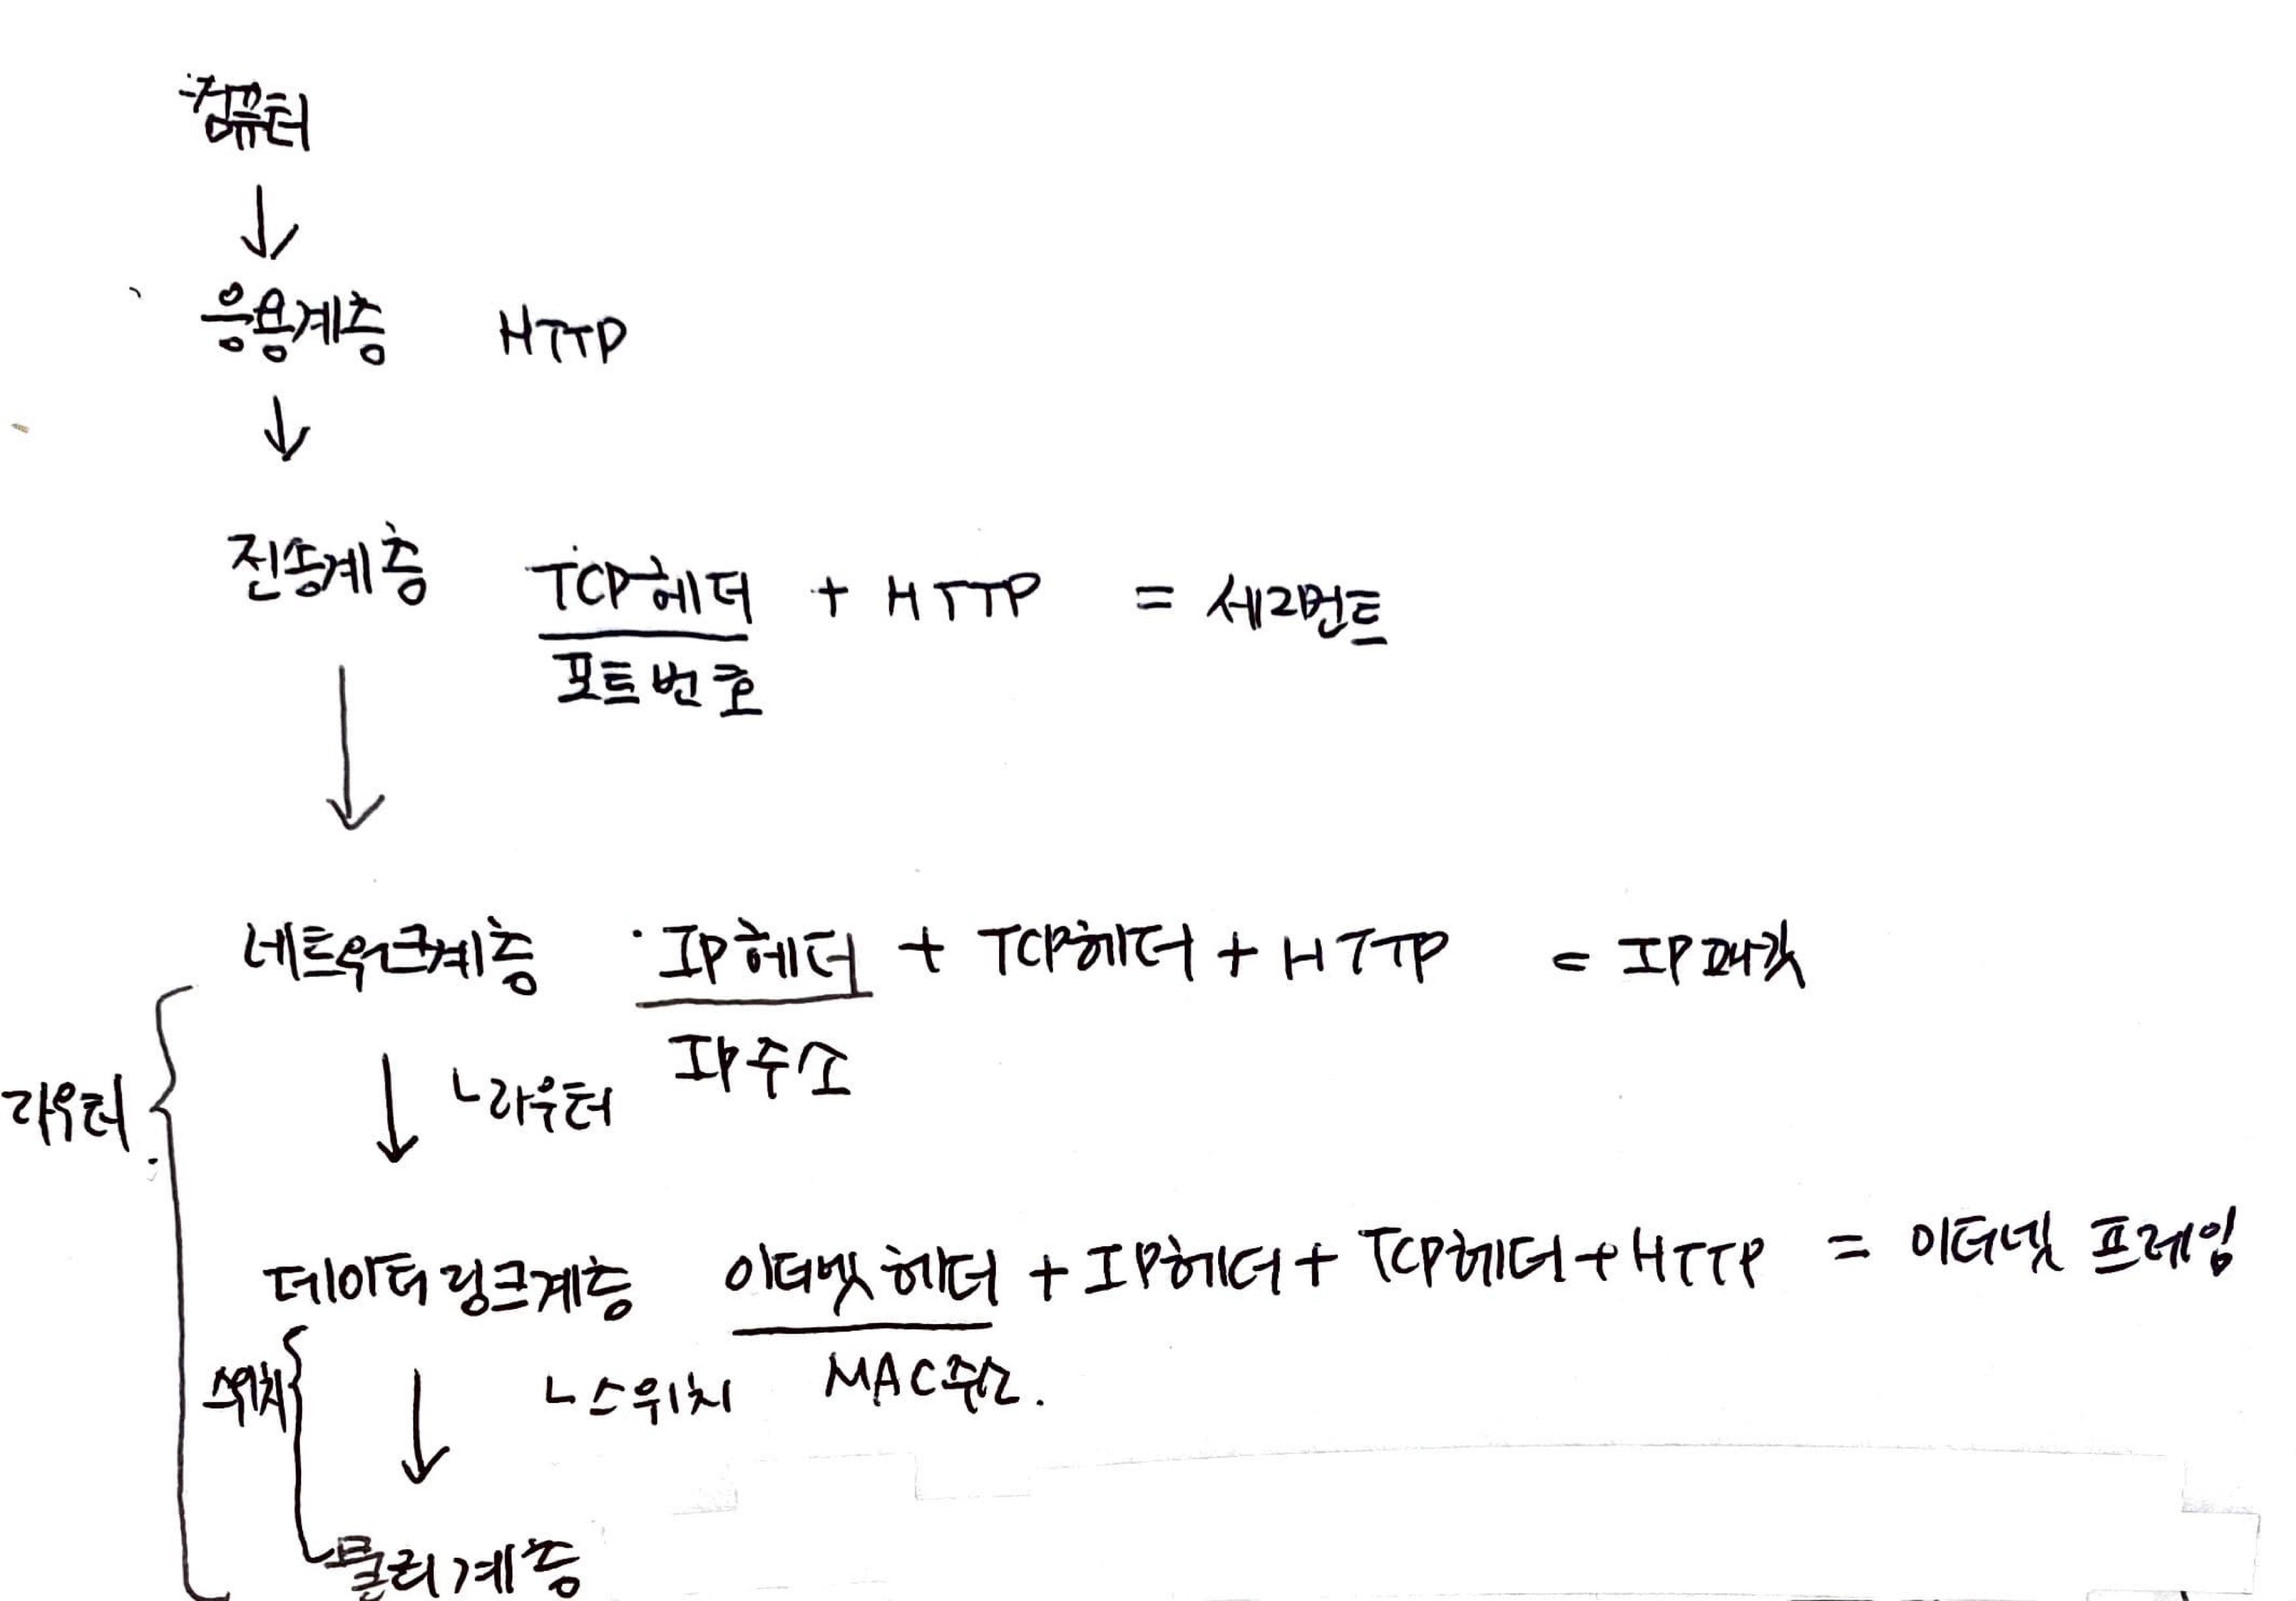 컴퓨터
↓
응용계층 HTTP
↓
전송계층 TCP헤더 + HTTP = 세그먼트
포트번호
↓
네트워크계층 IP헤더 + TCP헤더 + HTTP = IP패킷
IP주소
라우터 ↓ ㄴ라우터
데이터링크계층 이더넷 헤더 + IP헤더 + TCP헤더 + HTTP = 이더넷 프레임
스위치 ↓ ㄴ스위치 MAC주소.
물리계층